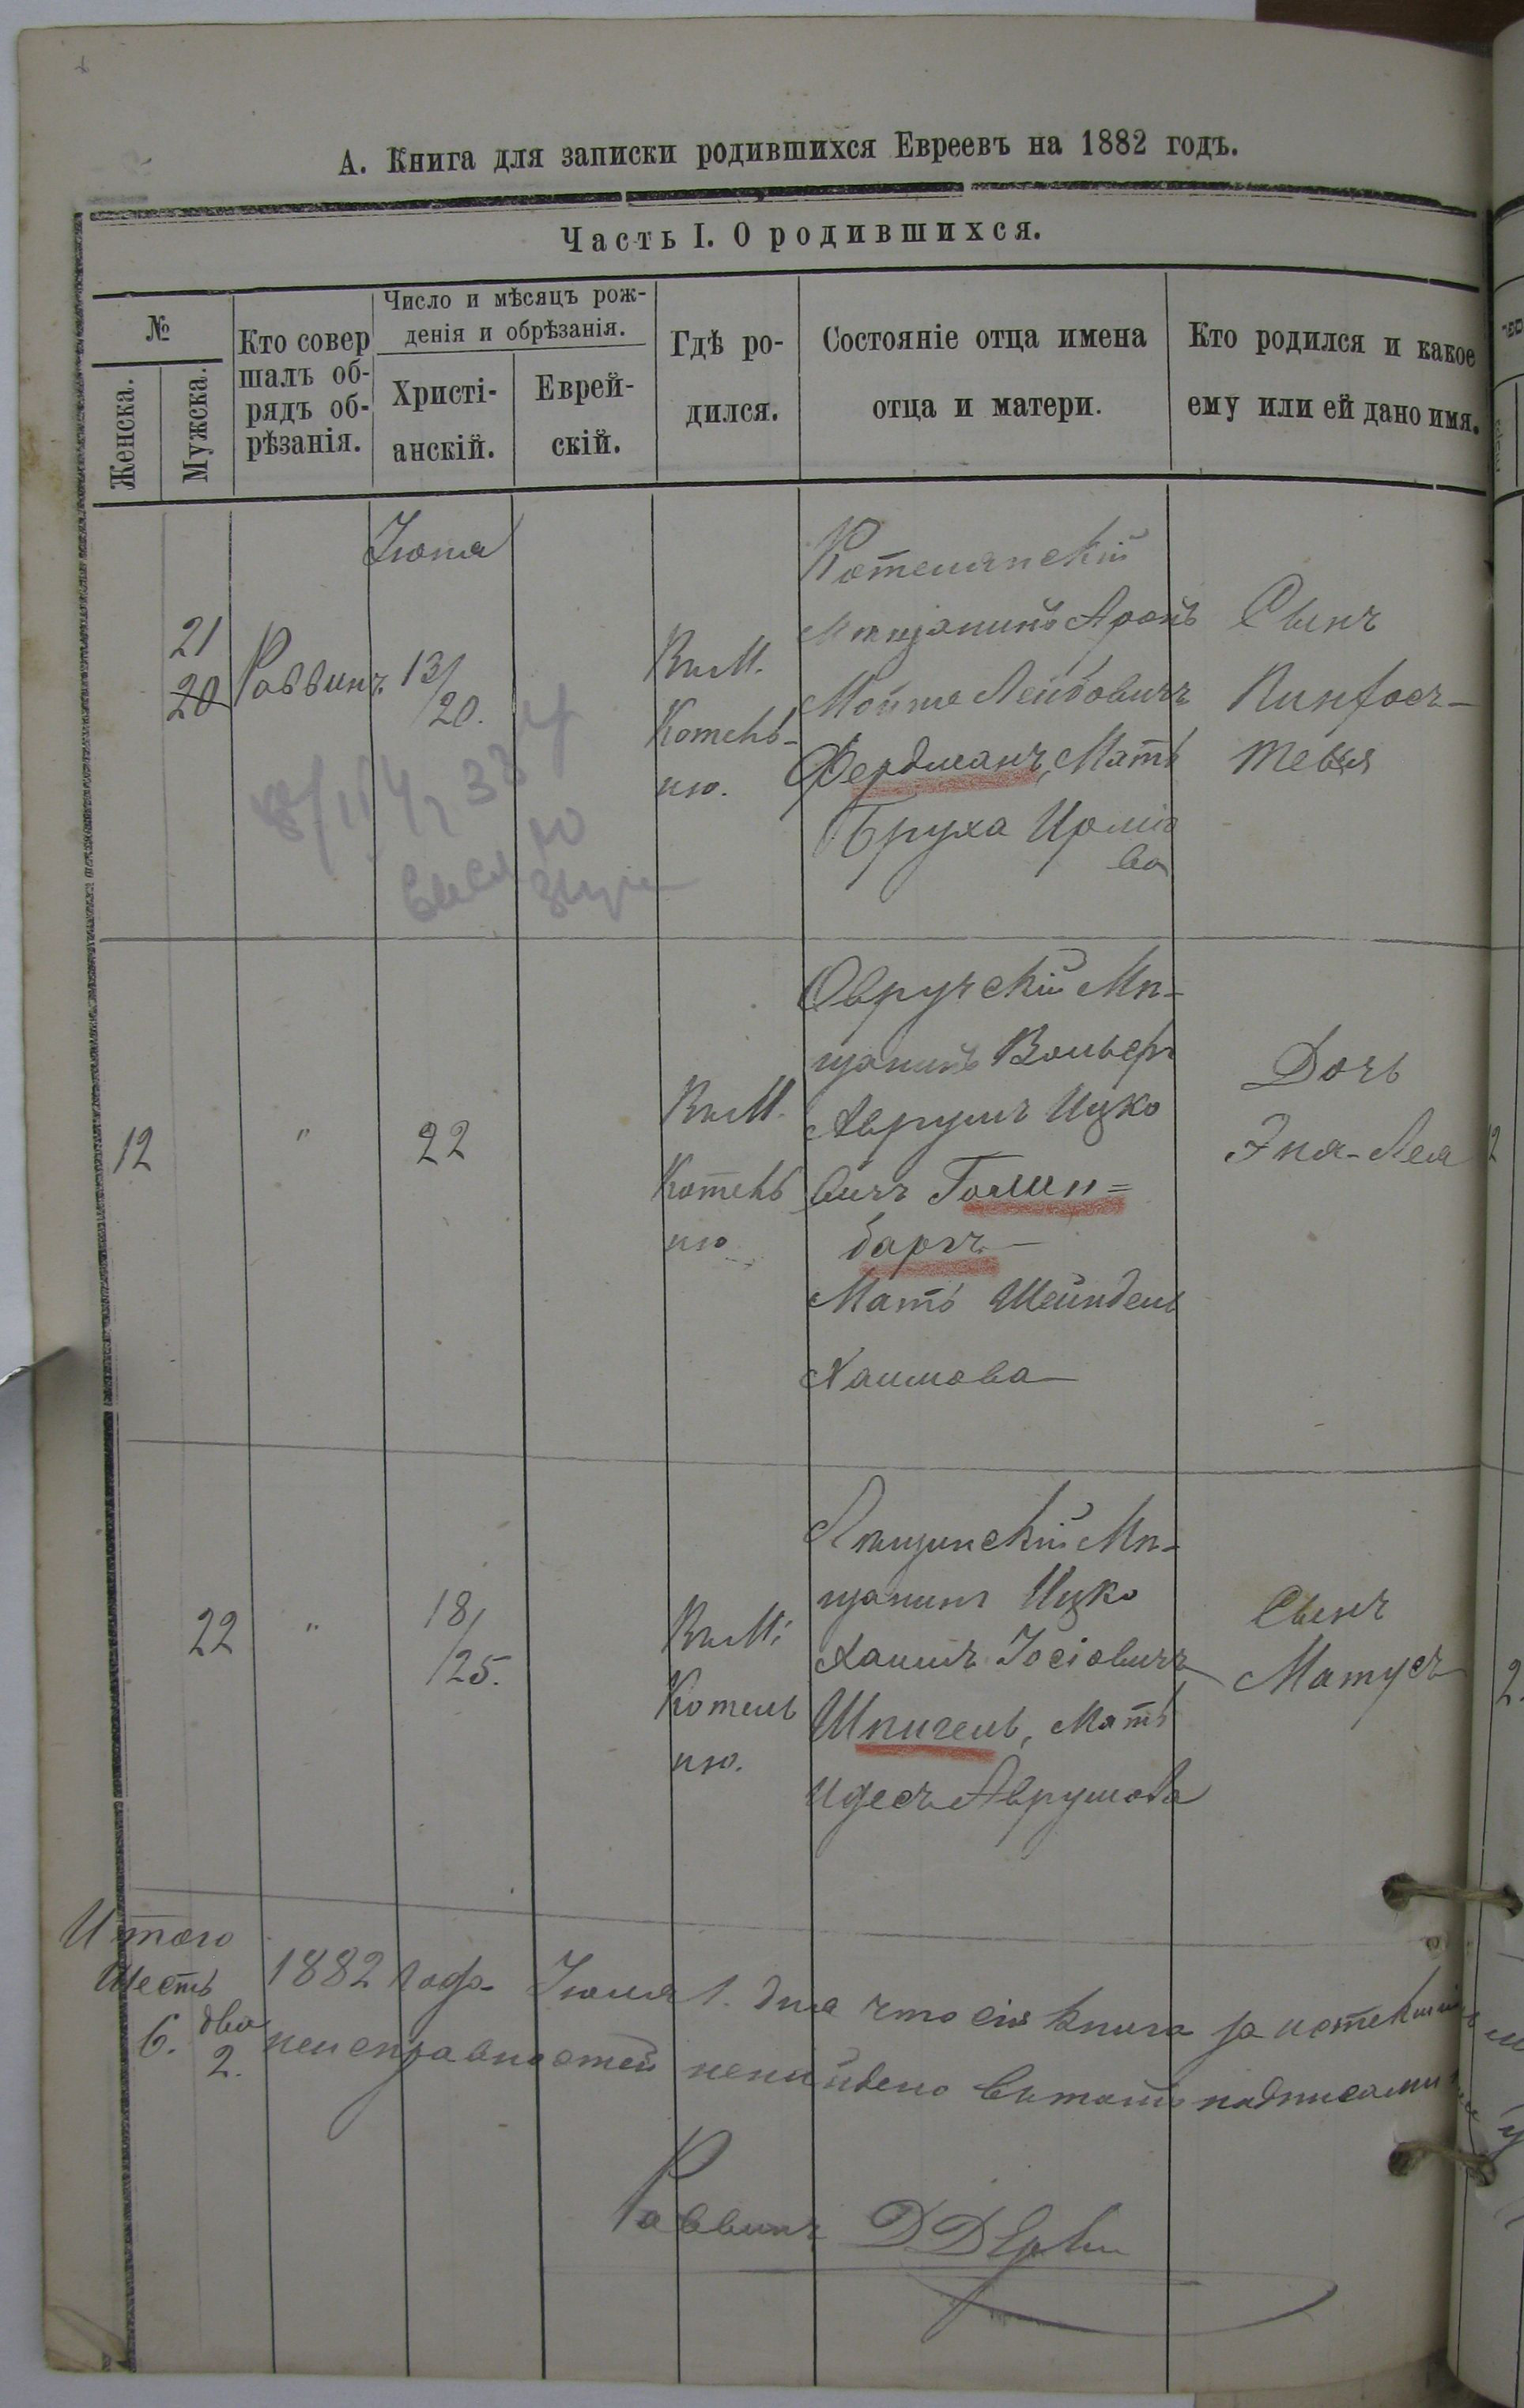 А. Книга для записки родившихся Евреевъ на 1882 годъ.
Часть I. О родившихся.
№
Женска.
Мужска.
Кто совер
шалъ об-
рядъ об-
рѣзанія.
Число и мѣсяцъ рож-
денія и обрѣзанія.
Христі-
анскій.
Еврей-
скій.
Гдѣ ро-
дился.
Состояніе отца имена
отца и матери.
Кто родился и какое
ему или ей дано имя.
21
20
Раввинъ
Іюня
13/
/20.
Въ М.
Котель-
ню.
Котелянскій
Мѣщанинъ Аронъ
Мойше Лейбовичъ
Фердманъ, Мать
Бруха
ва
Сынъ
Пинхос-
Тевья
12
"
22
Въ М.
Котель
ню
Овручскій Мѣ-
щанинъ Вольф
Аврумъ Ицко
вичъ Голин-
баргъ
Мать Шейндель
Хаимова
Дочь
Эня-Лея
22
"
18/
/25.
Въ М.
Котель
ню.
Мѣ-
щанинъ Ицко
Хаимъ Іосіовичъ
Шпигель, Мать
Идесъ Аврумова
Сынъ
Матусъ
Итого
шесть
6.
два
2.
1882 года Іюля 1. дня что сія книга за истекшій
неисправностей ненайдено въ томъ
Раввинъ